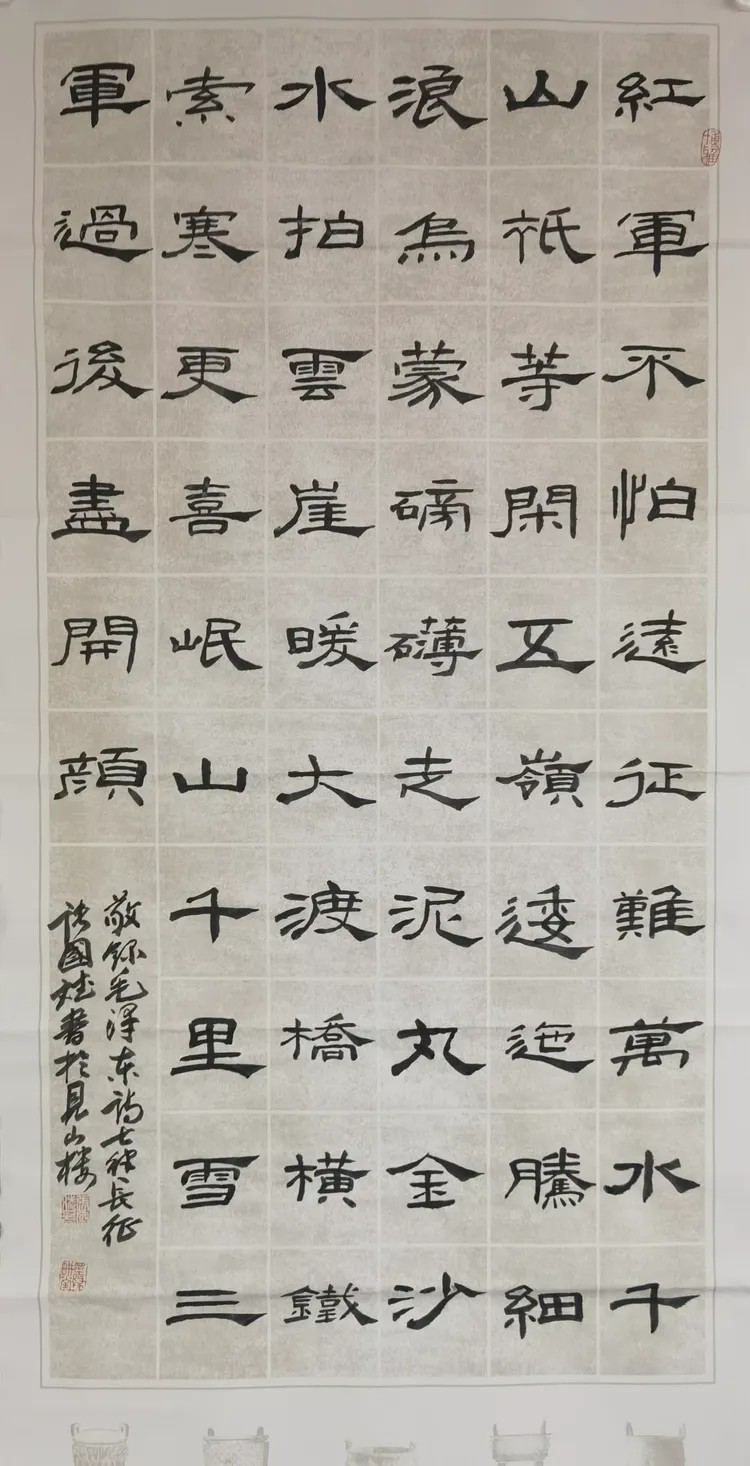 紅軍不怕遠征難萬水千
山祇等閑五嶺逶迤騰細
浪烏蒙磅礴走泥丸金沙
水拍雲崖暖大渡橋橫鐵
索寒更喜岷山千里雪三
軍過後盡開顏
敬錄毛澤东詩七律长征
國 書於見山楼